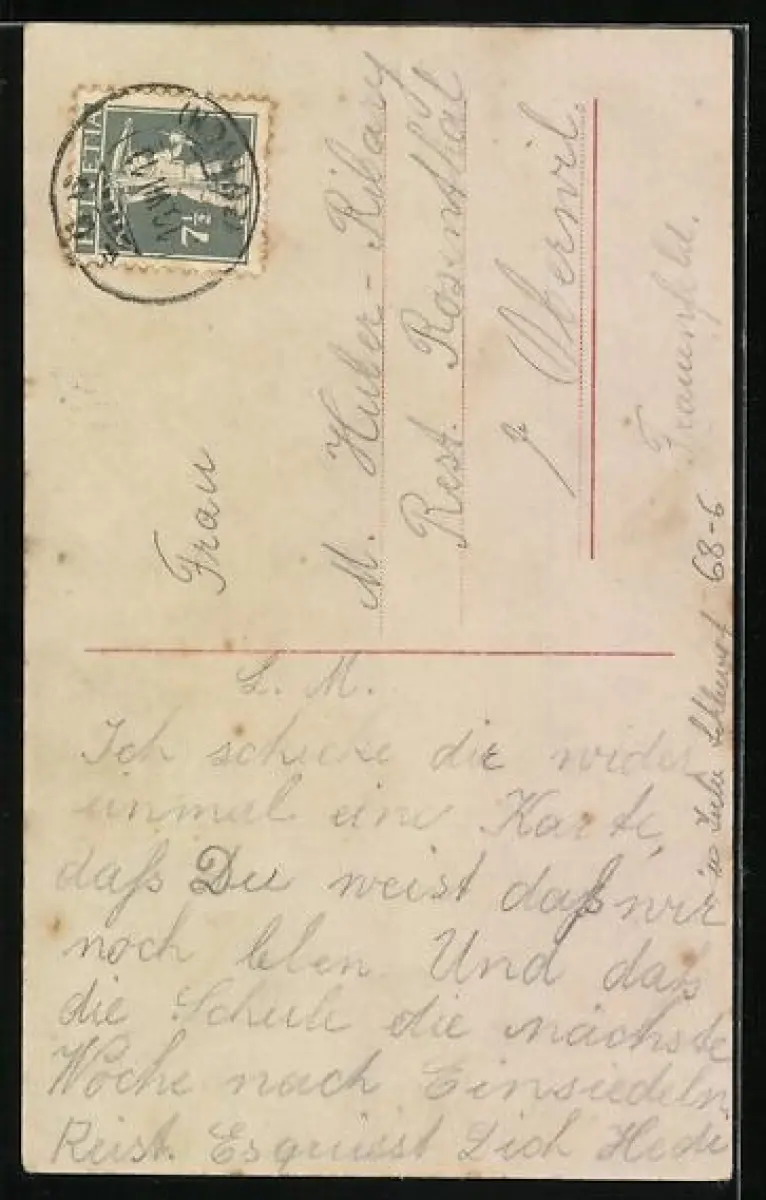 HELVETIA
7½
Frau
M. Huber-Ribary
Rest. Rosenthal
Oberwil.
Frauenfeld.
68-6
L. M.
Ich schicke dir wider
einmal eine Karte,
daß Du weist daß wir
noch leben. Und das
die Schule die nächste
Woche nach Einsiedeln
Reist. Es grüsst Dich Hedi